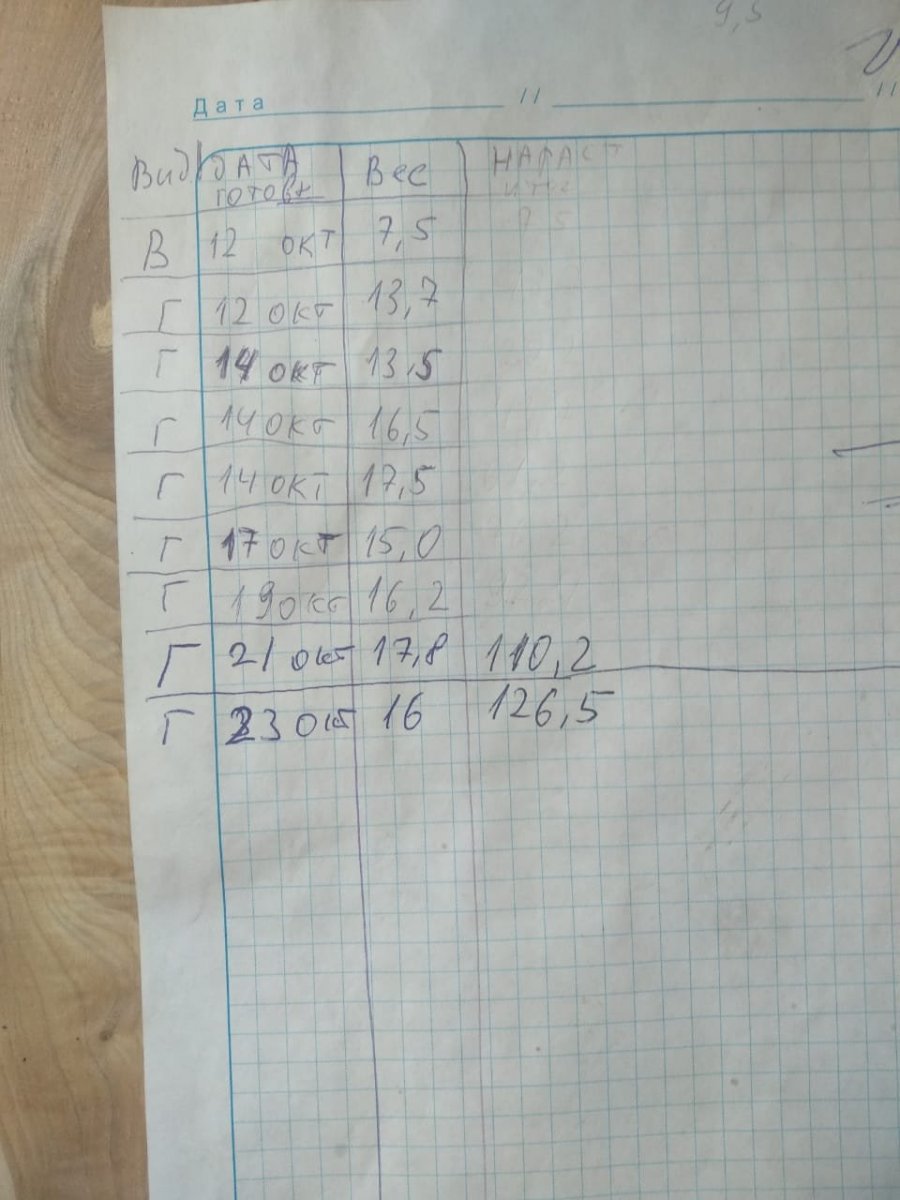 9,5
Дата " "
Вид ДАТА готовк Вес НАРАСТ
В 12 окт 7,5
Г 12 окт 13,7
Г 14 окт 13,5
Г 14 окт 16,5
Г 14 окт 17,5
Г 17 окт 15,0
Г 19 окт 16,2
Г 21 окт 17,8 110,2
Г 23 окт 16 126,5